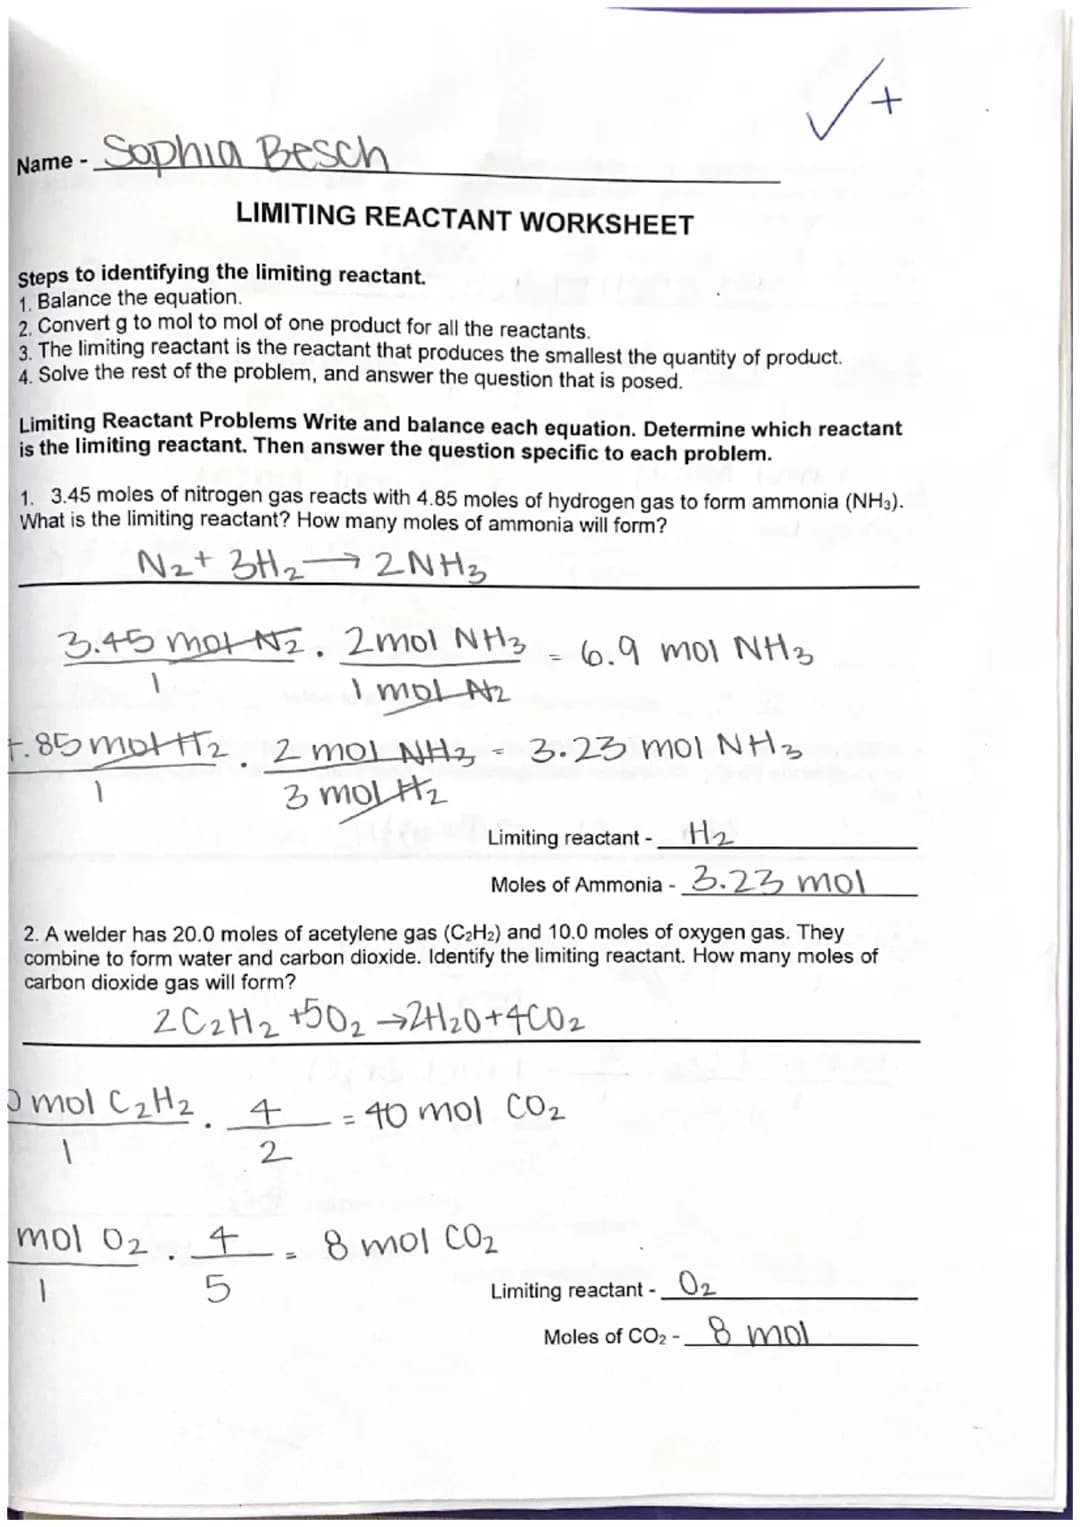 ✓+
Name - Sophia Besch
LIMITING REACTANT WORKSHEET
Steps to identifying the limiting reactant.
1. Balance the equation.
2. Convert g to mol to mol of one product for all the reactants.
3. The limiting reactant is the reactant that produces the smallest the quantity of product.
4. Solve the rest of the problem, and answer the question that is posed.
Limiting Reactant Problems Write and balance each equation. Determine which reactant
is the limiting reactant. Then answer the question specific to each problem.
1. 3.45 moles of nitrogen gas reacts with 4.85 moles of hydrogen gas to form ammonia (NH₃).
What is the limiting reactant? How many moles of ammonia will form?
N₂ + 3H₂ → 2NH₃
3.45 mol N₂ . 2 mol NH₃ = 6.9 mol NH₃
1 1 mol N₂
.85 mol H₂ . 2 mol NH₃ = 3.23 mol NH₃
1 3 mol H₂
Limiting reactant - H₂
Moles of Ammonia - 3.23 mol
2. A welder has 20.0 moles of acetylene gas (C₂H₂) and 10.0 moles of oxygen gas. They
combine to form water and carbon dioxide. Identify the limiting reactant. How many moles of
carbon dioxide gas will form?
2C₂H₂ + 5O₂ → 2H₂O + 4CO₂
mol C₂H₂ . 4 = 40 mol CO₂
1 2
mol O₂ . 4 = 8 mol CO₂
1 5
Limiting reactant - O₂
Moles of CO₂ - 8 mol